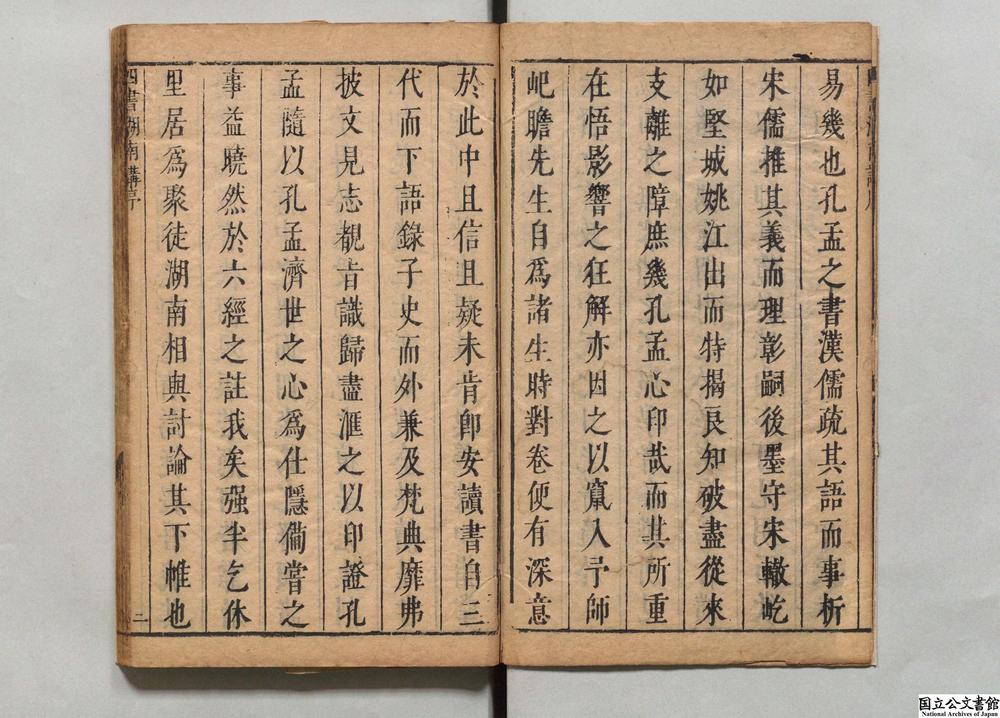 易幾也孔孟之書漢儒疏其語而事析
宋儒推其義而理彰嗣後墨守宋轍屹
如堅城姚江出而特揭良知破盡從來
支離之障庶幾孔孟心印哉而其所重
在悟影響之狂解亦因之以竄入予師
屺瞻先生自爲諸生時對卷便有深意
於此中且信且疑未肯卽安讀書自三
代而下語錄子史而外兼及梵典靡弗
披文見志覩旨識歸盡滙之以印證孔
孟隨以孔孟濟世之心爲仕隱備嘗之
事益曉然於六經之註我矣强半乞休
里居爲聚徒湖南相與討論其下帷也
四書湖南講序
二
国立公文書館
National Archives of Japan